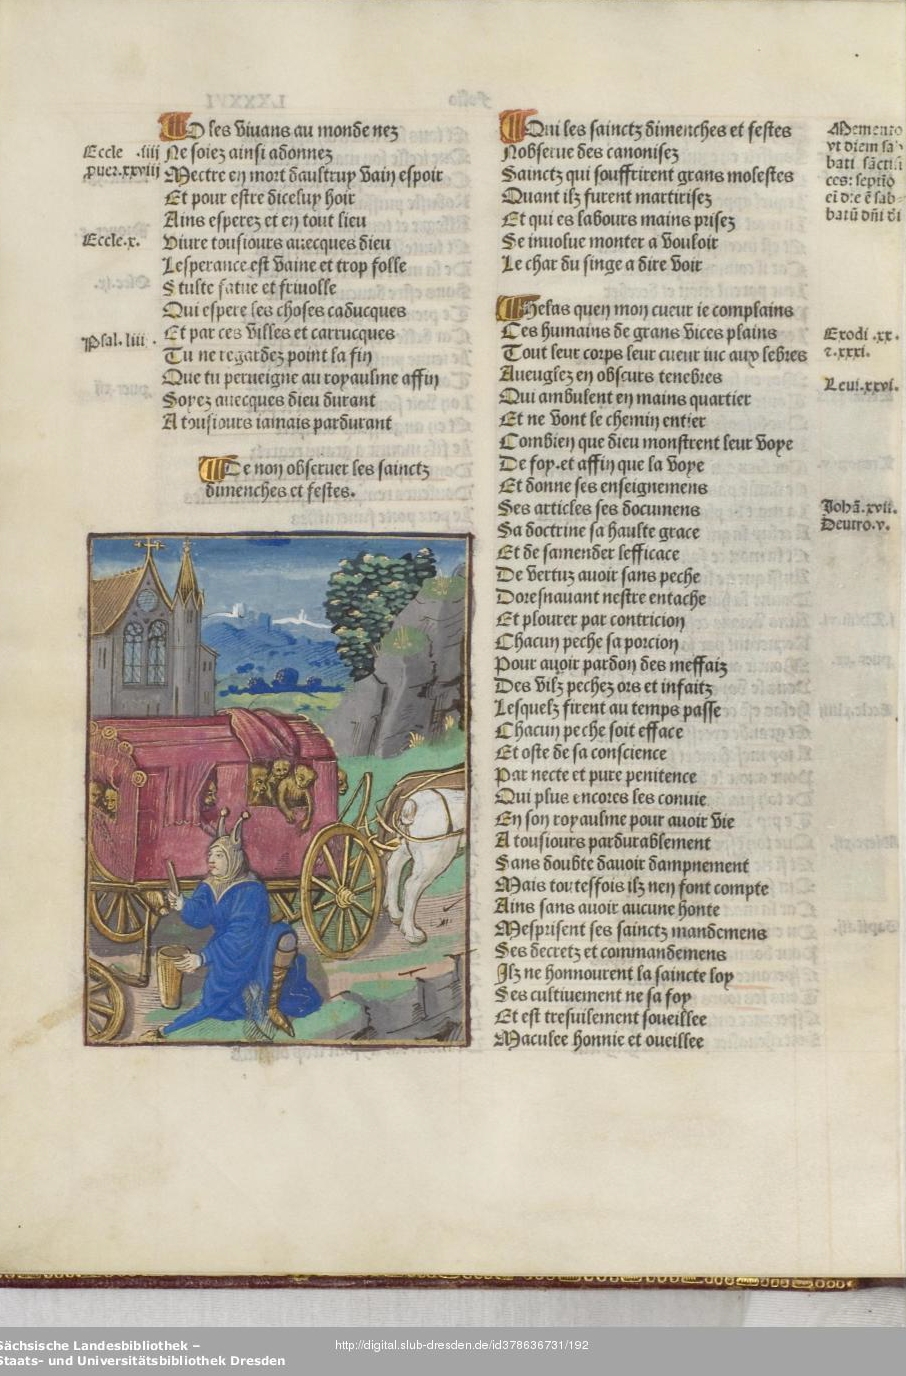 O les vivans au monde nez
Eccle .iiii Ne soiez ainsi adonnez
prover.xxviii Mectre en mort daultruy vain espoir
Et pour estre dicelup hoir
Ains esperez et en tout lieu
Eccle.x. Vivre tousiours avecques dieu
Lesperance est vaine et trop folle
Stulte fatue et frivolle
Qui espere les choses caducques
Psal. liii . Et par ces villes et carrucques
Tu ne regardez point la fin
Que tu perveigne au royaulme affin
Soyez avecques dieu durant
A tousiours iamais pardurant
De non observer les sainctz
dimenches et festes.
Qui les sainctz dimenches et festes
Nobserve des canonisez
Sainctz qui souffrirent grans molestes
Quant ilz furent martirisez
Et qui es labours mains prisez
Se involue monter a vouloir
Le char du singe a dire voir
Memento
vt diem sab
bati sãcti
Helas quen mon cueur ie complains
Ces humains de grans vices plains
Tout leur corps leur cueur iuc aux lebres
Aveuglez en obscurs tenebres
Qui ambulent en mains quartier
Et ne vont le chemin entier
Combien que dieu monstrent leur voye
De foy.et affin que la voye
Et donne ses enseignemens
Ses articles ses documens
Sa doctrine sa haulte grace
Et de samender lefficace
De vertuz avoir sans peche
Doresnavant nestre entache
Et plourer par contricion
Chacun peche sa porcion
Pour avoir pardon des meffaiz
Des vilz pechez ors et infaitz
Lesquelz firent au temps passe
Chacun peche soit efface
Et oste de sa conscience
Par necte et pure penitence
Qui plus encores les convie
En son royaulme pour avoir vie
A tousiours pardurablement
Sans doubte davoir dampnement
Mais toutesfois ilz nen font compte
Ains sans avoir aucune honte
Mesprisent ses sainctz mandemens
Ses decretz et commandemens
Ilz ne honnourent la saincte loy
Ses cultivement ne sa foy
Et est tresvilement soveillee
Maculee honnie et oveillee
Exodi .xx.
z.xxxi.
Levi.xxvi.
Johã.xvii.
Deutro.v.
Sächsische Landesbibliothek –
Staats- und Universitätsbibliothek Dresden
http://digital.slub-dresden.de/id378636731/192